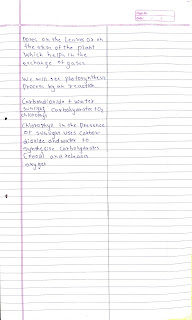 Pores on the leaves or on
the stem of the plant
which helps in the
exchange of gases
We will see photosynthesis
process by an reaction
Carbondioxide + water
sunlight carbohydrate + O2
chlorophyll
Chlorophyll in the presence
of sunlight uses carbon
dioxide and water to
synthesise carbohydrates
(food) and releases
oxygen